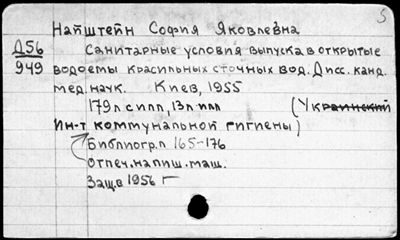 5
Найштейн София Яковлевна
Д56 Санитарные условия выпуска в открытые
949 водоемы красильных сточных вод. Дисс. канд.
мед. наук. Киев, 1955
179 л с илл, 13 л илл (Украинский
Ин-т коммунальной гигиены)
Библиогр. л 165-176
отпеч. на пиш. маш.
Защ в 1956 г